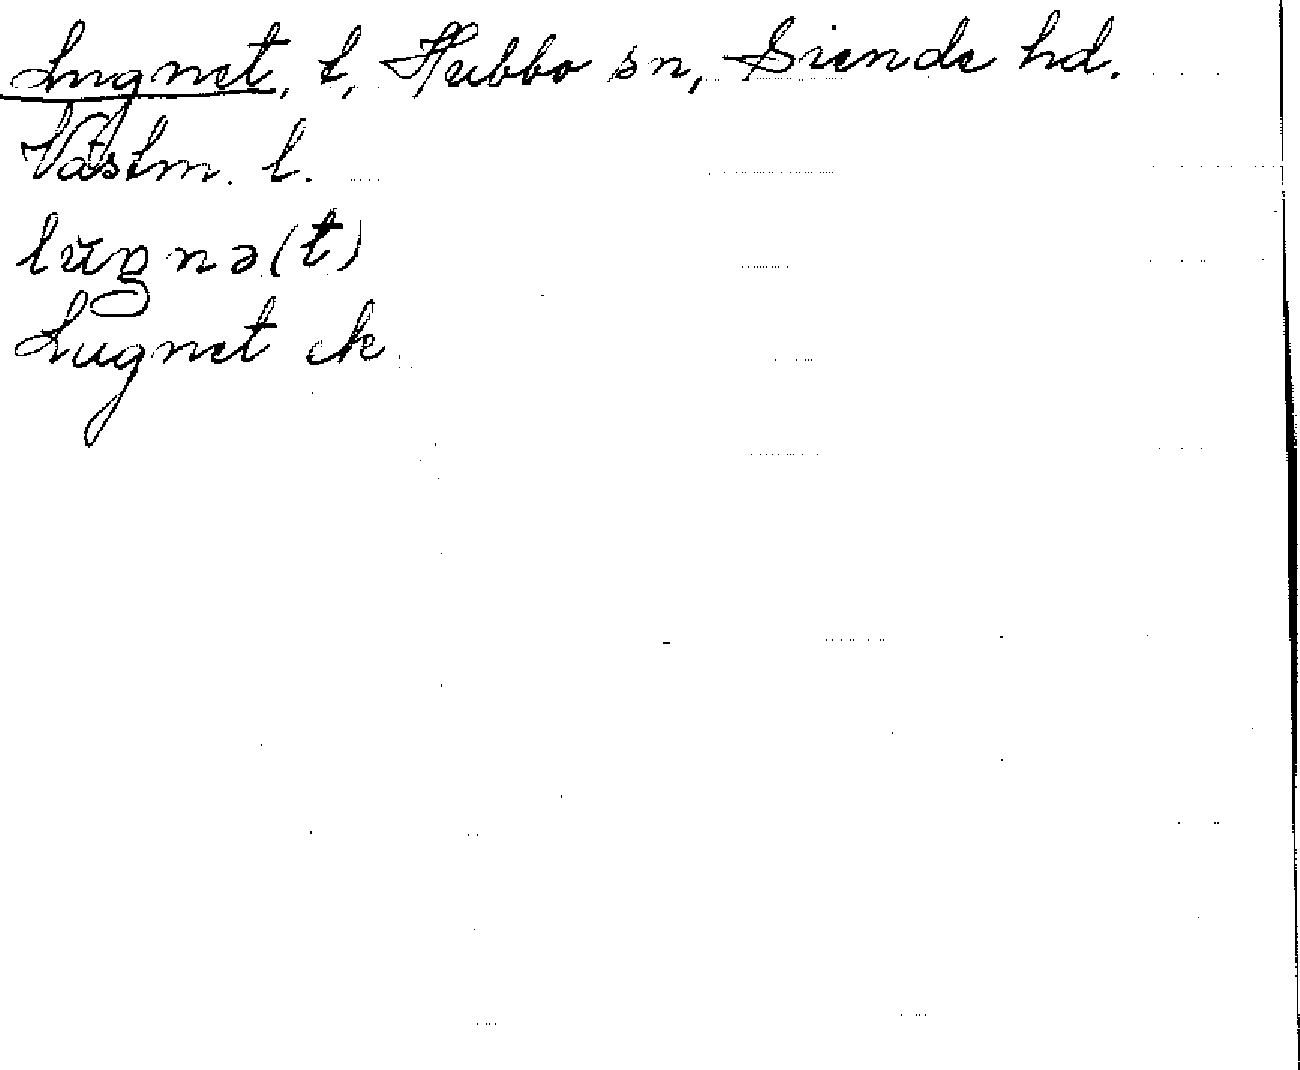 Lugnet, t, Hubbo sn, Siende hd.
Västm. l.
lŭgnə(t)
Lugnet ek